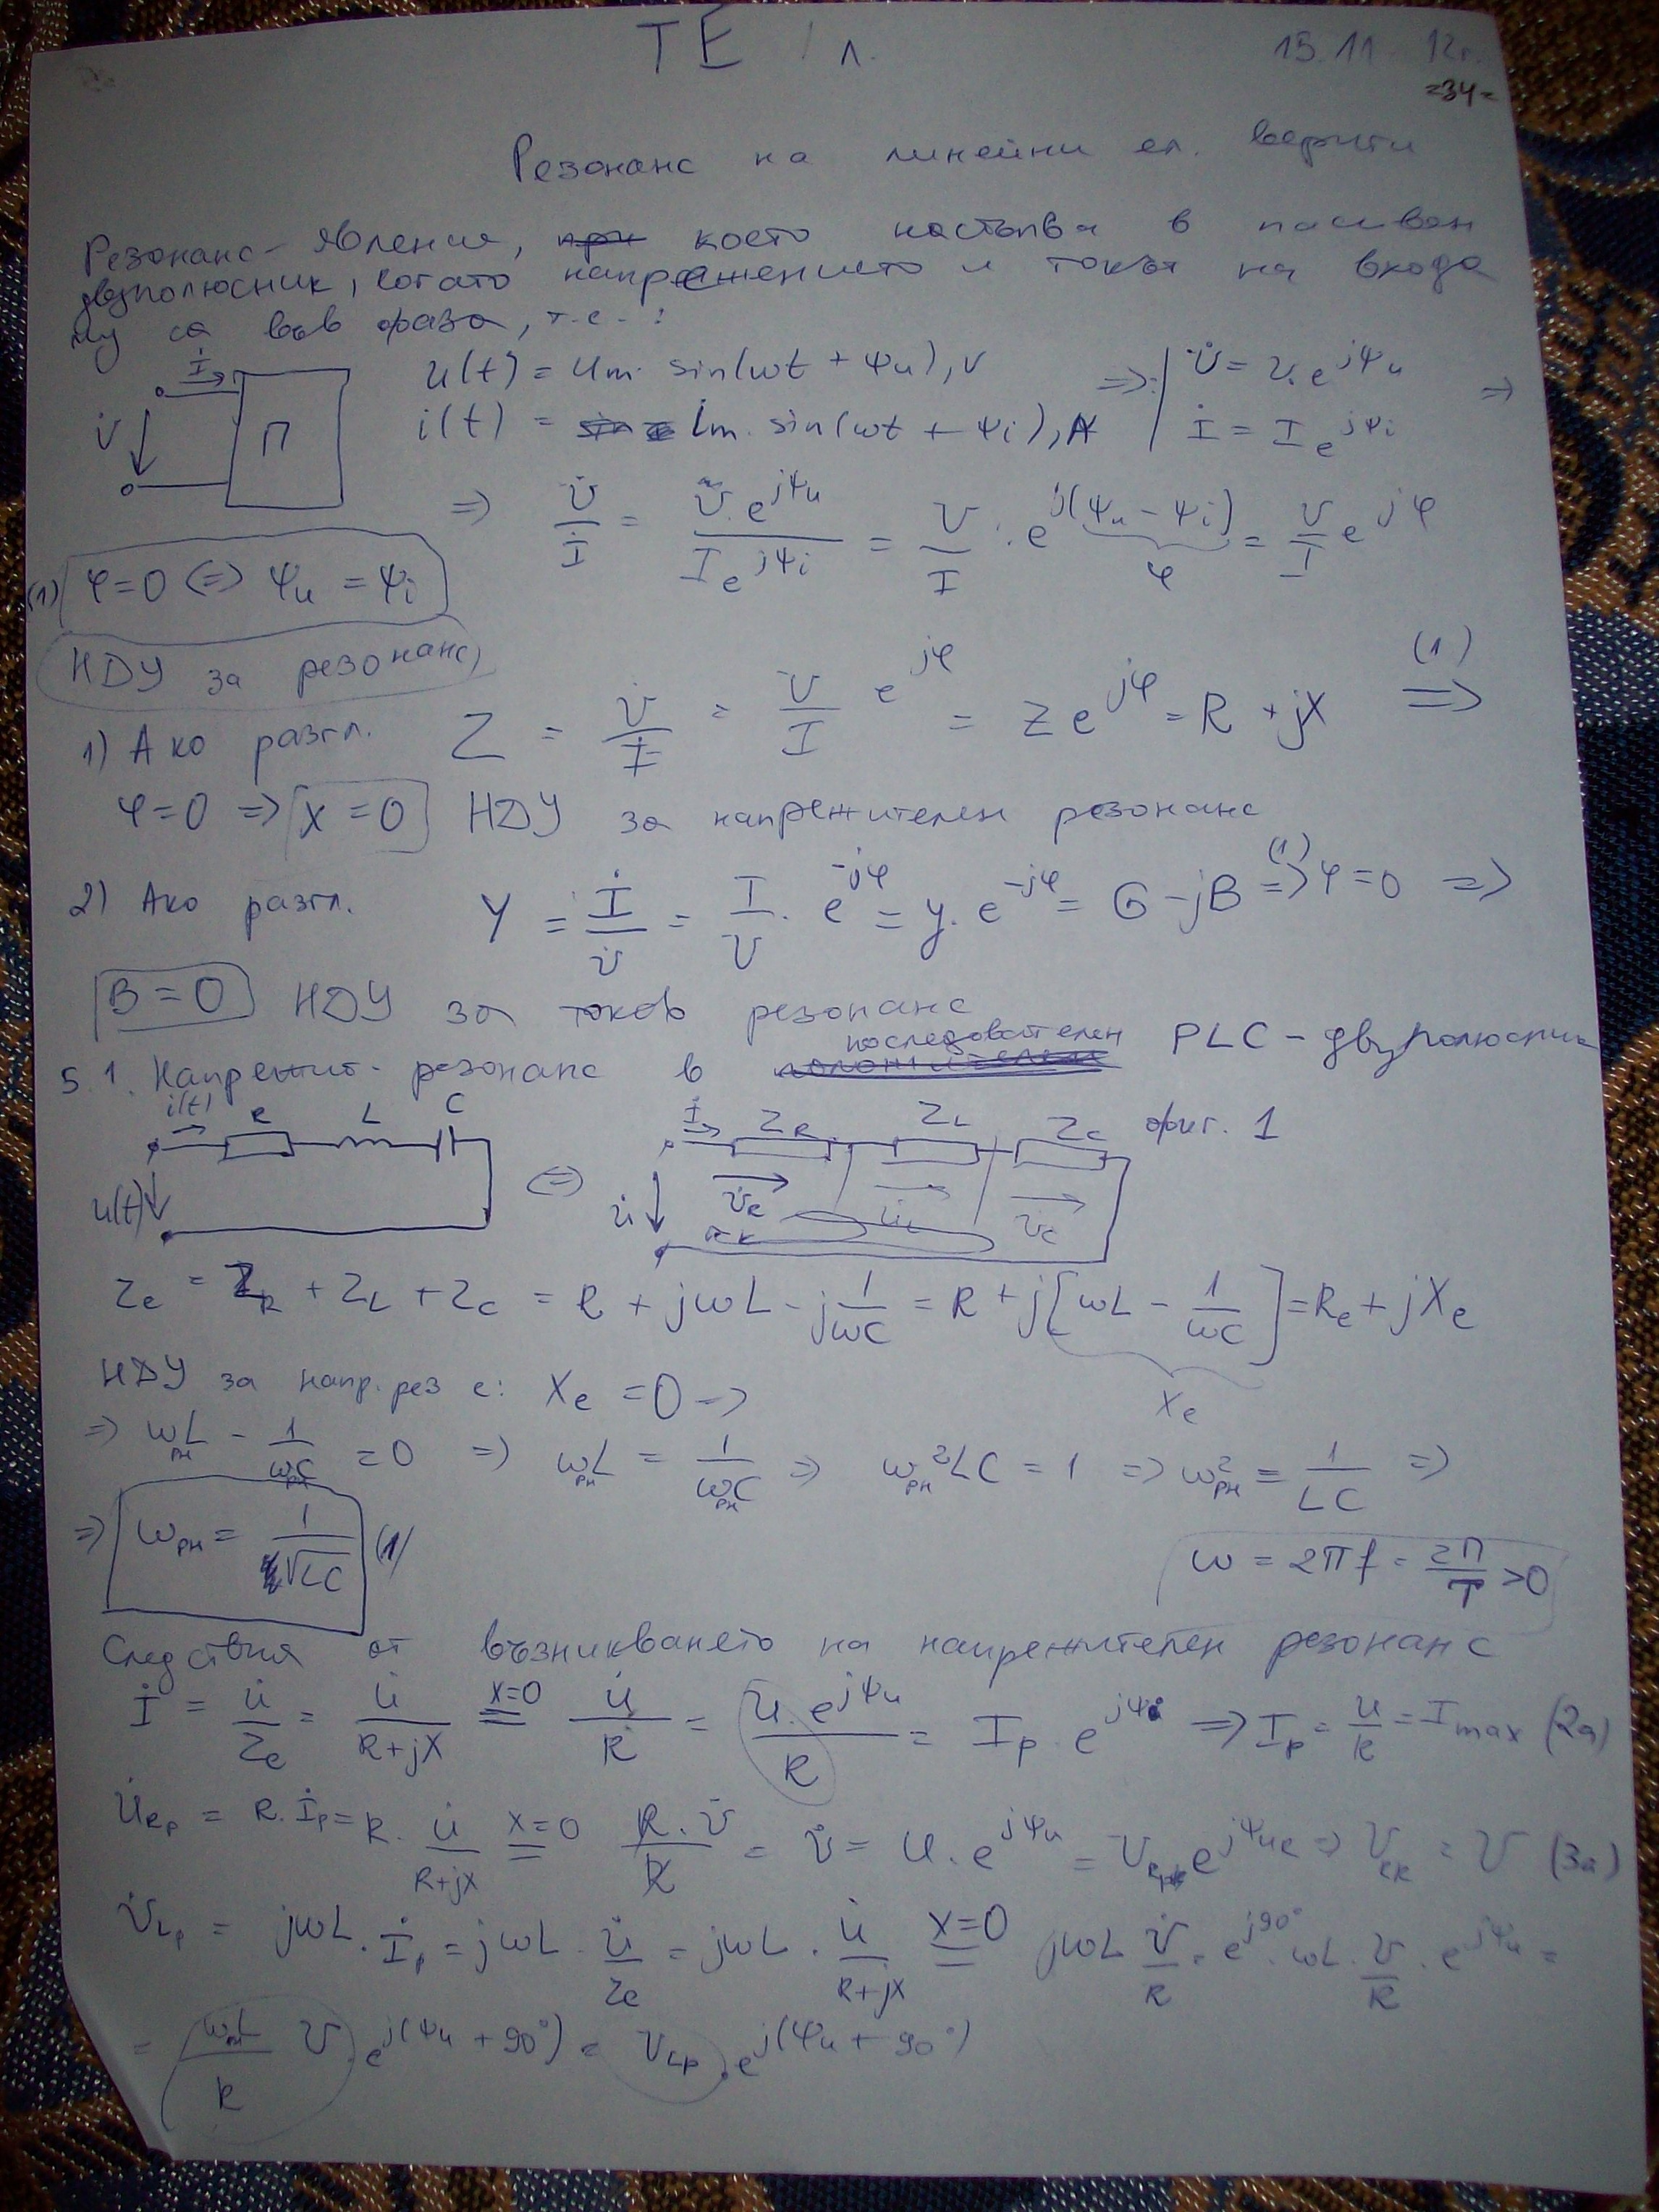 ТЕ / л.
15.11 12г.
=34=
Резонанс на линейни ел. вериги
Резонанс - явление, при което настъпва в пасивен
двуполюсник, когато напрежението и токът на входа
му са във фаза, т.е. :
İ
U̇
П
u(t) = Um. sin(ωt + Ψu), V
i(t) = Im. sin(ωt + Ψi), A
=> | U̇ = U.e^jΨu =>
İ = I e^jΨi
=> U̇/İ = U̇.e^jΨu / I e^jΨi = U/I . e^j(Ψu - Ψi) = U/I e^jφ
φ
(1) φ=0 <=> Ψu = Ψi
НДУ за резонанс
1) Ако разгл. Z = U̇/İ = U/I e^jφ = z e^jφ = R + jX (1) =>
φ=0 => X = 0 НДУ за напрежителен резонанс
2) Ако разгл. Y = İ/U̇ = I/U . e^-jφ = y. e^-jφ = G - jB (1) => φ=0 =>
B = 0 НДУ за токов резонанс
5.1. Напрежит. резонанс в последователен РLC - двуполюсник
i(t) R L C
u(t)
<=>
İ ZR ZL ZC фиг. 1
U̇ U̇R U̇L U̇C
Ze = ZR + ZL + ZC = R + jωL - j 1/ωC = R + j[ωL - 1/ωC] = Re + jXe
Xe
НДУ за напр. рез е: Xe = 0 =>
=> ωрнL - 1/ωрнC = 0 => ωрнL = 1/ωрнC => ωрн²LC = 1 => ωрн² = 1/LC =>
=> ωрн = 1/√LC (1)
ω = 2πf = 2π/T >0
Следствия от възникването на напрежителен резонанс
İ = U̇/Ze = U̇/R+jX =(X=0) U̇/R = U.e^jΨu/R = Ip . e^jΨi => Ip = U/R = Imax (2а)
U̇Rp = R.İp = R. U̇/R+jX =(X=0) R.U̇/R = U̇ = U.e^jΨu = URp e^jΨuR => URp = U (3а)
U̇Lp = jωL.İp = jωL . U̇/Ze = jωL . U̇/R+jX =(X=0) jωL U̇/R = e^j90° . ωL . U/R . e^jΨu =
= ωрнL/R U . e^j(Ψu + 90°) = ULp . e^j(Ψu + 90°)